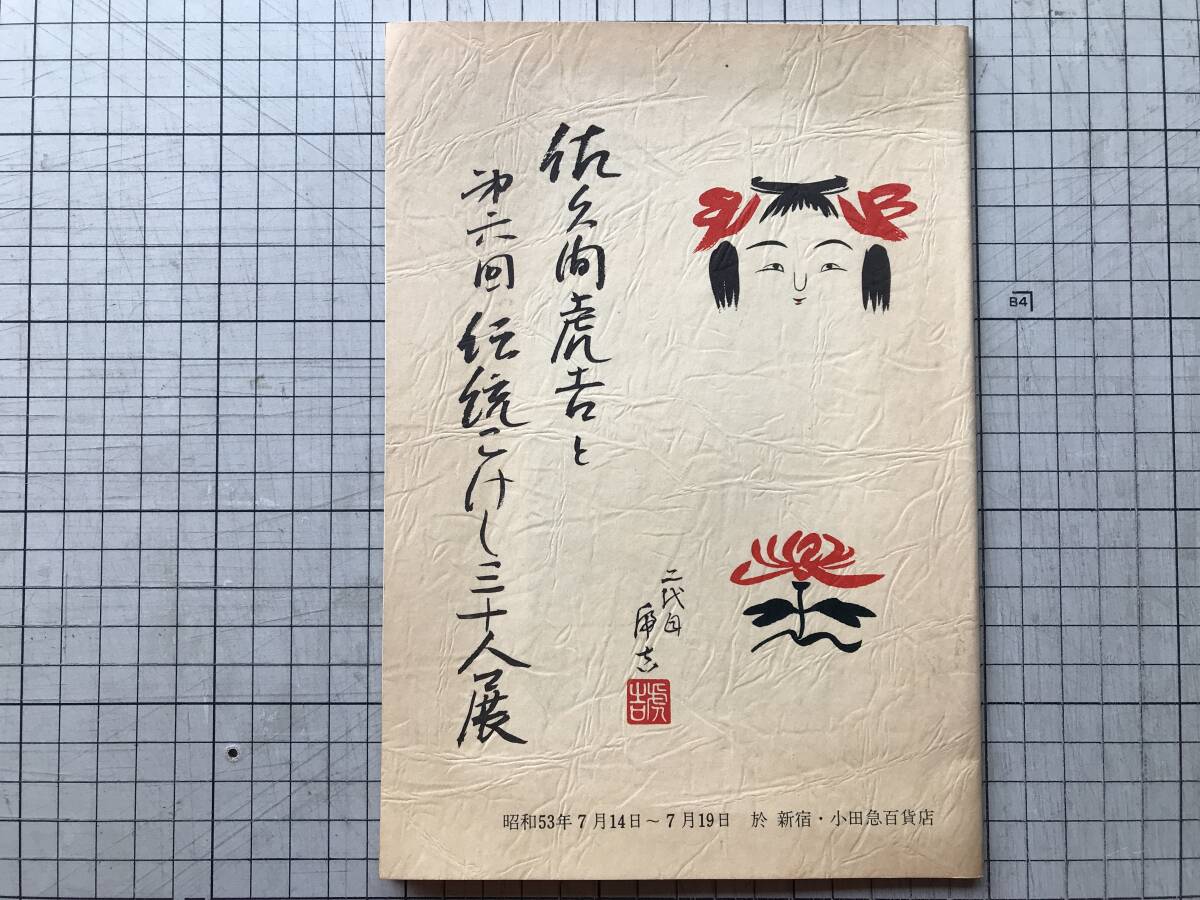 佐久間虎吉と
第六回 伝統こけし三十人展
二代目
虎吉
虎吉
昭和53年7月14日～7月19日 於 新宿・小田急百貨店
B4